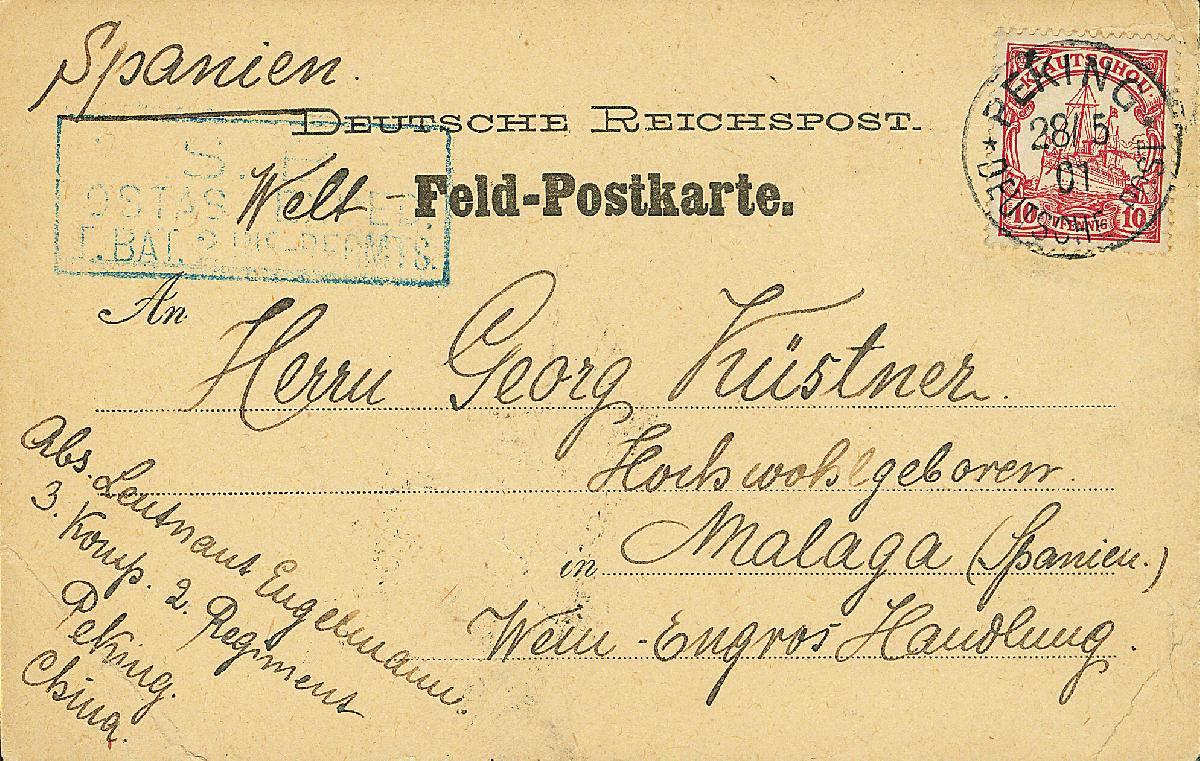 Spanien.
DEUTSCHE REICHSPOST.
Welt - Feld-Postkarte.
S.B.
I. BAT. 2
KIAUTSCHOU
10 PFENNIG 10
PEKING
28/5
01
* DEUTSCHE POST *
An
Herrn Georg Küstner.
Hochwohlgeboren.
in Malaga (Spanien.)
Wein-Engros Handlung.
Abs. Leutnant Engelmann.
3. Komp. 2. Regiment
Peking.
China.